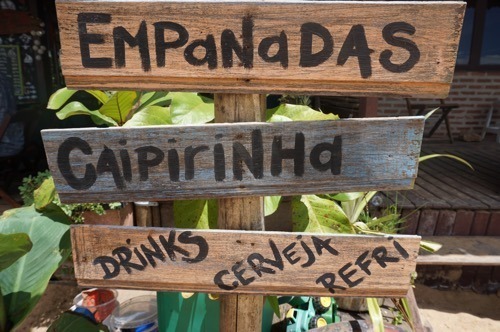 EMPANADAS
CAIPIRINHA
DRINKS CERVEJA REFRI